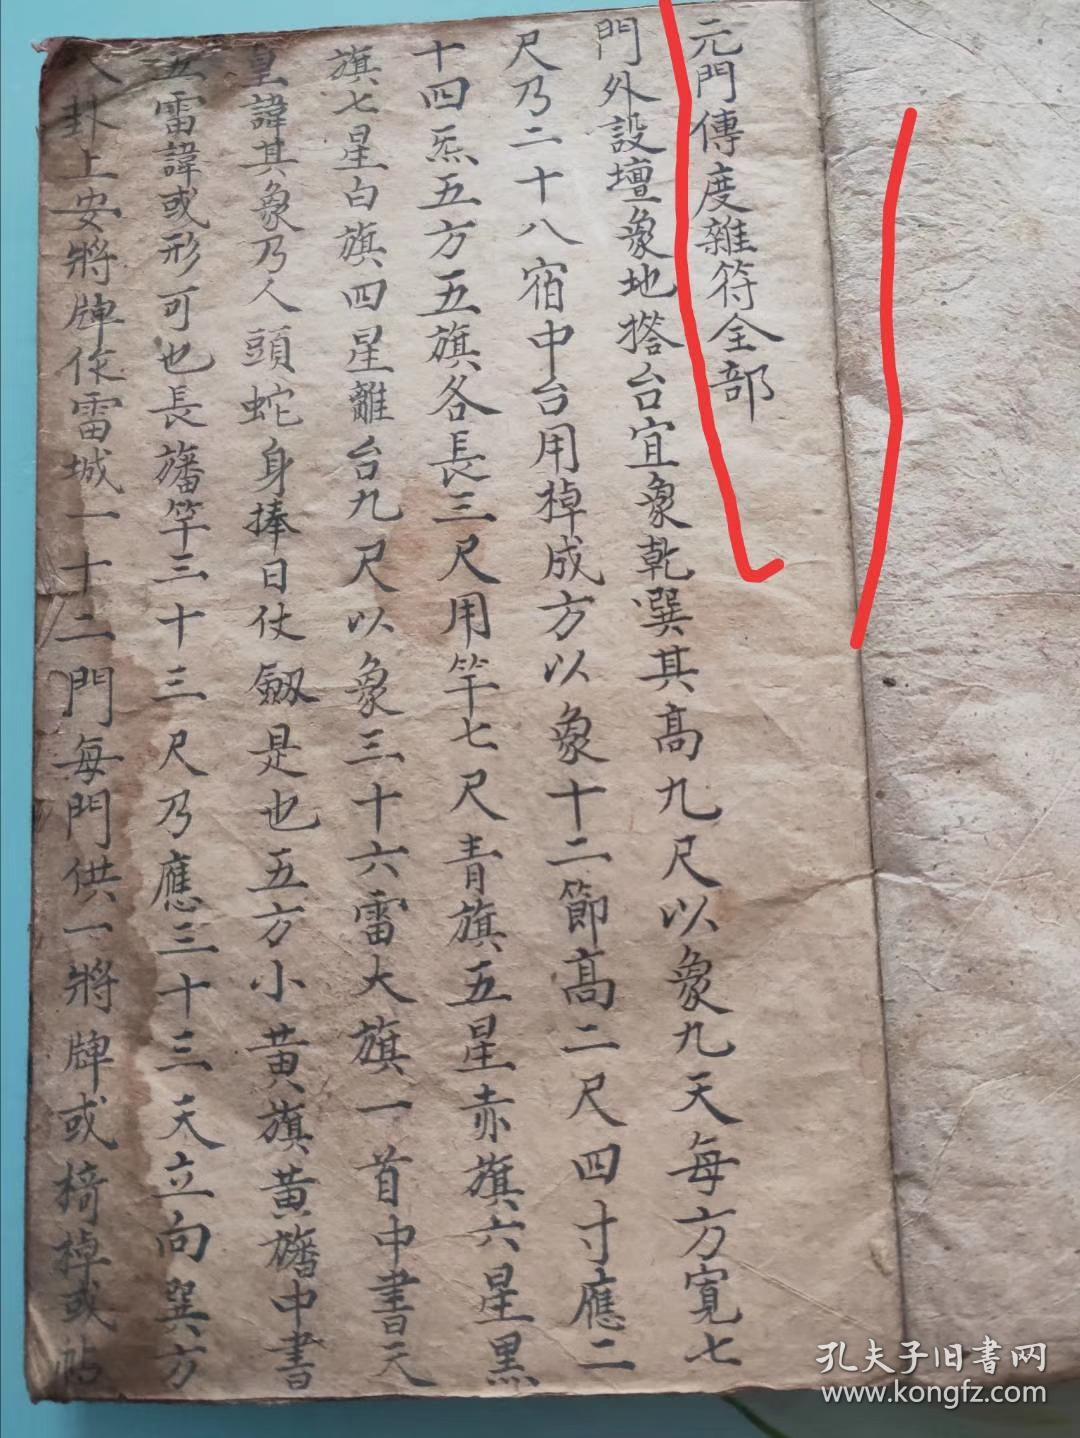 元門傳度雜符全部
門外設壇象地搭台宜象乾巽其高九尺以象九天每方寬七
尺乃二十八宿中台用棹成方以象十二節高二尺四寸應二
十四炁五方五旗各長三尺用竿七尺青旗五星赤旗六星黑
旗七星白旗四星離台九尺以象三十六雷大旗一首中書天
皇諱其象乃人頭蛇身捧日仗劔是也五方小黃旗黃旛中書
五雷諱或形可也長旛竿三十三尺乃應三十三天立向巽方
八卦上安將牌作雷城一十二門每門供一將牌或椅棹或帖
孔夫子旧书网
www.kongfz.com